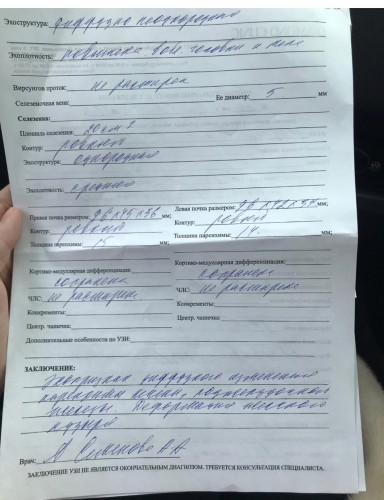 Эхоструктура: диффузно неоднородная
Эхоплотность: повышена в обл головки и тела
Вирсунгов проток: не расширен
Селезеночная вена: Ее диаметр: 5 мм
Селезенка:
Площадь селезенки: 20 см 2
Контур: ровный
Эхоструктура: однородная
Эхоплотность: средняя
Правая почка размером: мм;
Контур: ровный
Толщина паренхимы: 15 мм;
Левая почка размером: мм;
Контур: ровный
Толщина паренхимы: 14. мм;
Кортико-медулярная дифференциация:
сохранена
ЧЛС: не расширена
Конкременты:
Центр. чашечка:
Кортико-медулярная дифференциация:
сохранена
ЧЛС: не расширена
Конкременты:
Центр. чашечка:
Дополнительные особенности по УЗИ:
ЗАКЛЮЧЕНИЕ:
Эхопризнаки диффузного изменения
паренхимы печени, поджелудочной
железы. Деформация желчного
пузыря
Врач: Семенова А А
ЗАКЛЮЧЕНИЕ УЗИ НЕ ЯВЛЯЕТСЯ ОКОНЧАТЕЛЬНЫМ ДИАГНОЗОМ. ТРЕБУЕТСЯ КОНСУЛЬТАЦИЯ СПЕЦИАЛИСТА.